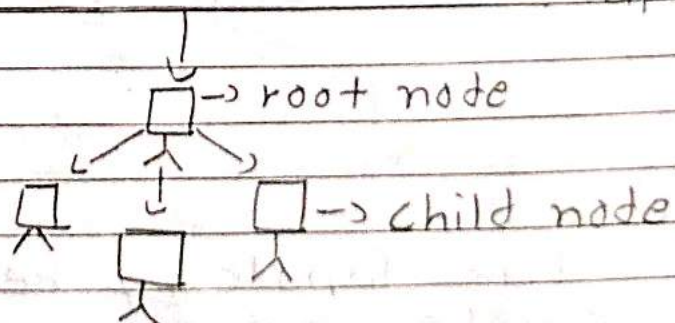 -> root node
-> child node